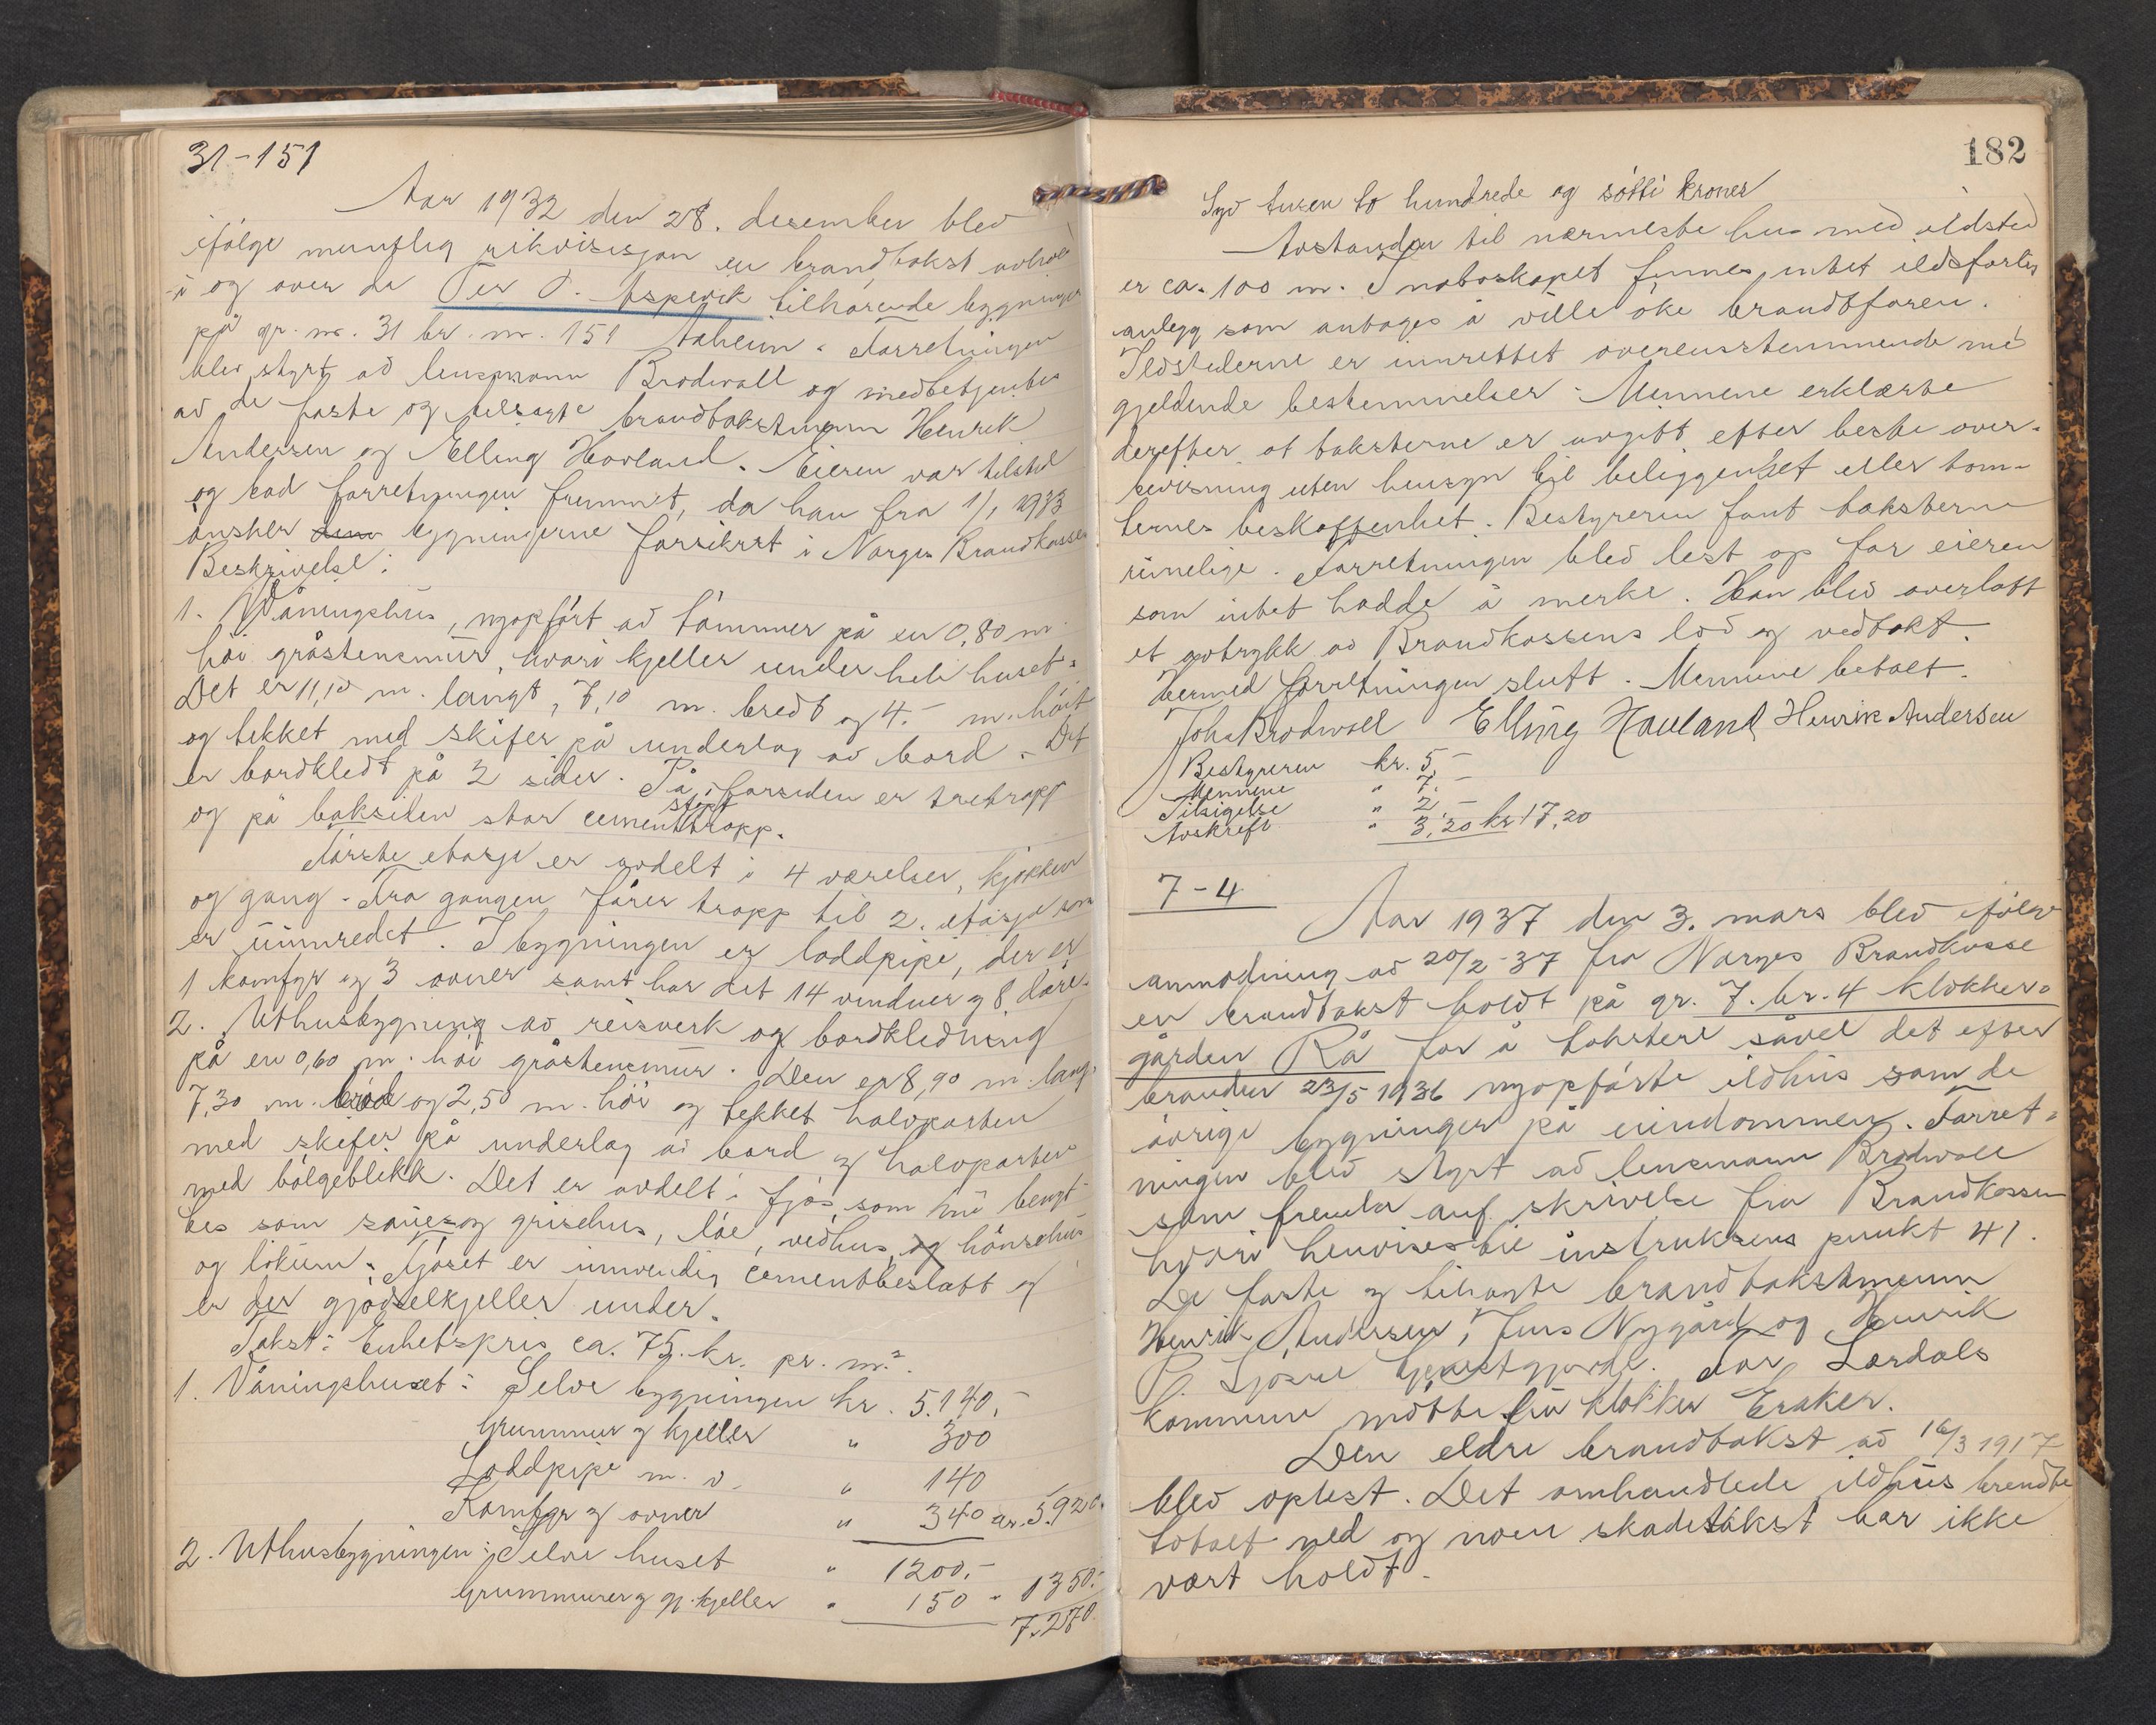 31-151
Aar 1932 den 28. desember blev
ifølge muntlig rikvisisjon en brandtakst avholdt
i og over de Per O. Aspevik tilhørende bygninger
på gr. nr. 31 br. nr. 151 Aaheim. Forretningen
blev styrt av lensmann Brodwall og medbetjentes
av de faste og tilsagte brandtakstmenn Henrik
Andersen og Elling Hovland. Eieren var tilsted
og bad forretningen fremmet, da han fra 1/1 1933
ønsker bygningerne forsikret i Norges Brandkasse
Beskrivelse:
1. Våningshus, nyopført av tømmer på en 0,80 m
høi gråstensmur, hvori kjeller under hele huset.
Det er 11,10 m. langt, 7,10 m. bredt og 4.- m. høit
og tekket med skifer på underlag av bord. Det
er bordkledt på 2 sider. På forsiden er tretrapp
og på baksiden støpt cementtrapp.
Første etasje er avdelt i 4 værelser, kjøkken
og gang. Fra gangen fører trapp til 2. etasje som
er uinnredet. I bygningen er loddpipe, der er
1 komfyr og 3 ovner samt har det 14 vinduer og 8 døre.
2. Uthusbygning av reisverk og bordkledning
på en 0,60 m. høi gråstensmur. Den er 8,90 m. lang,
7,30 m. bred og 2,50 m. høi og tekket halvparten
med skifer på underlag av bord og halvparten
med bølgeblikk. Det er avdelt i fjøs, som nu benyt-
tes som saue- og grisehus, løe, vedhus, og hønsehus
og lokum. Fjøset er innvendig cementbeslatt og
er der gjødselkjeller under.
Takst: Enhetspris ca. 75. kr. pr. m.².
1. Våningshuset: Selve bygningen kr. 5.140,-
Grunnmur og kjeller " 300
Loddpipe m. v. " 140
Komfyr og ovner " 340 kr. 5.920.
2. Uthusbygningen: Selve huset " 1200.-
Grunnmurer og gj.kjeller " 150 - 1350.-
7.270.
182
Syv tusen to hundrede og søtti kroner
Avstanden til nærmeste hus med ildsted
er ca. 100 m. I naboskapet finnes intet ildsfarlig
anlegg som antages å ville øke brandtfaren.
Ildstederne er innrettet overensstemmende med
gjeldende bestemmelser. Mennene erklærte
derefter at taksterne er avgitt efter beste over-
bevisning uten hensyn til beliggenhet eller tom-
ternes beskaffenhet. Bestyreren fant taksterne
rimelige. Forretningen blev lest op for eieren
som intet hadde å merke. Han blev overlatt
et avtrykk av Brandkassens lov og vedtekt.
Hermed forretningen slutt. Mennene betalt.
Joh. Brodwall Elling Hauland Henrik Andersen
Bestyreren kr. 5,-
Mennene " 7.-
Tilsigelse " 2,-
Avskrift " 3,20 kr 17,20
7-4
Aar 1937 den 3. mars blev ifølge
anmodning av 20/2-37 fra Norges Brandkasse
en brandtakst holdt på gr. 7. br. 4 klokker-
gården Rå for å takstere såvel det efter
branden 23/5 1936 nyopførte ildhus som de
øvrige bygninger på eiendommen. Forret-
ningen blev styrt av lensmann Brodwall
som fremla anf. skrivelse fra Brandkassen
hvori henvises til instruksens punkt 41.
De faste og tilsagte brandtakstmenn
Henrik Andersen, Jens Nygård og Henrik
P. Ljøsne For Lærdals
kommune møtte fru klokker Eraker.
Den eldre brandtakst av 16/3 1917
blev oplest. Det omhandlede ildhus brendte
totalt ned og noen skadetakst har ikke
vært holdt.